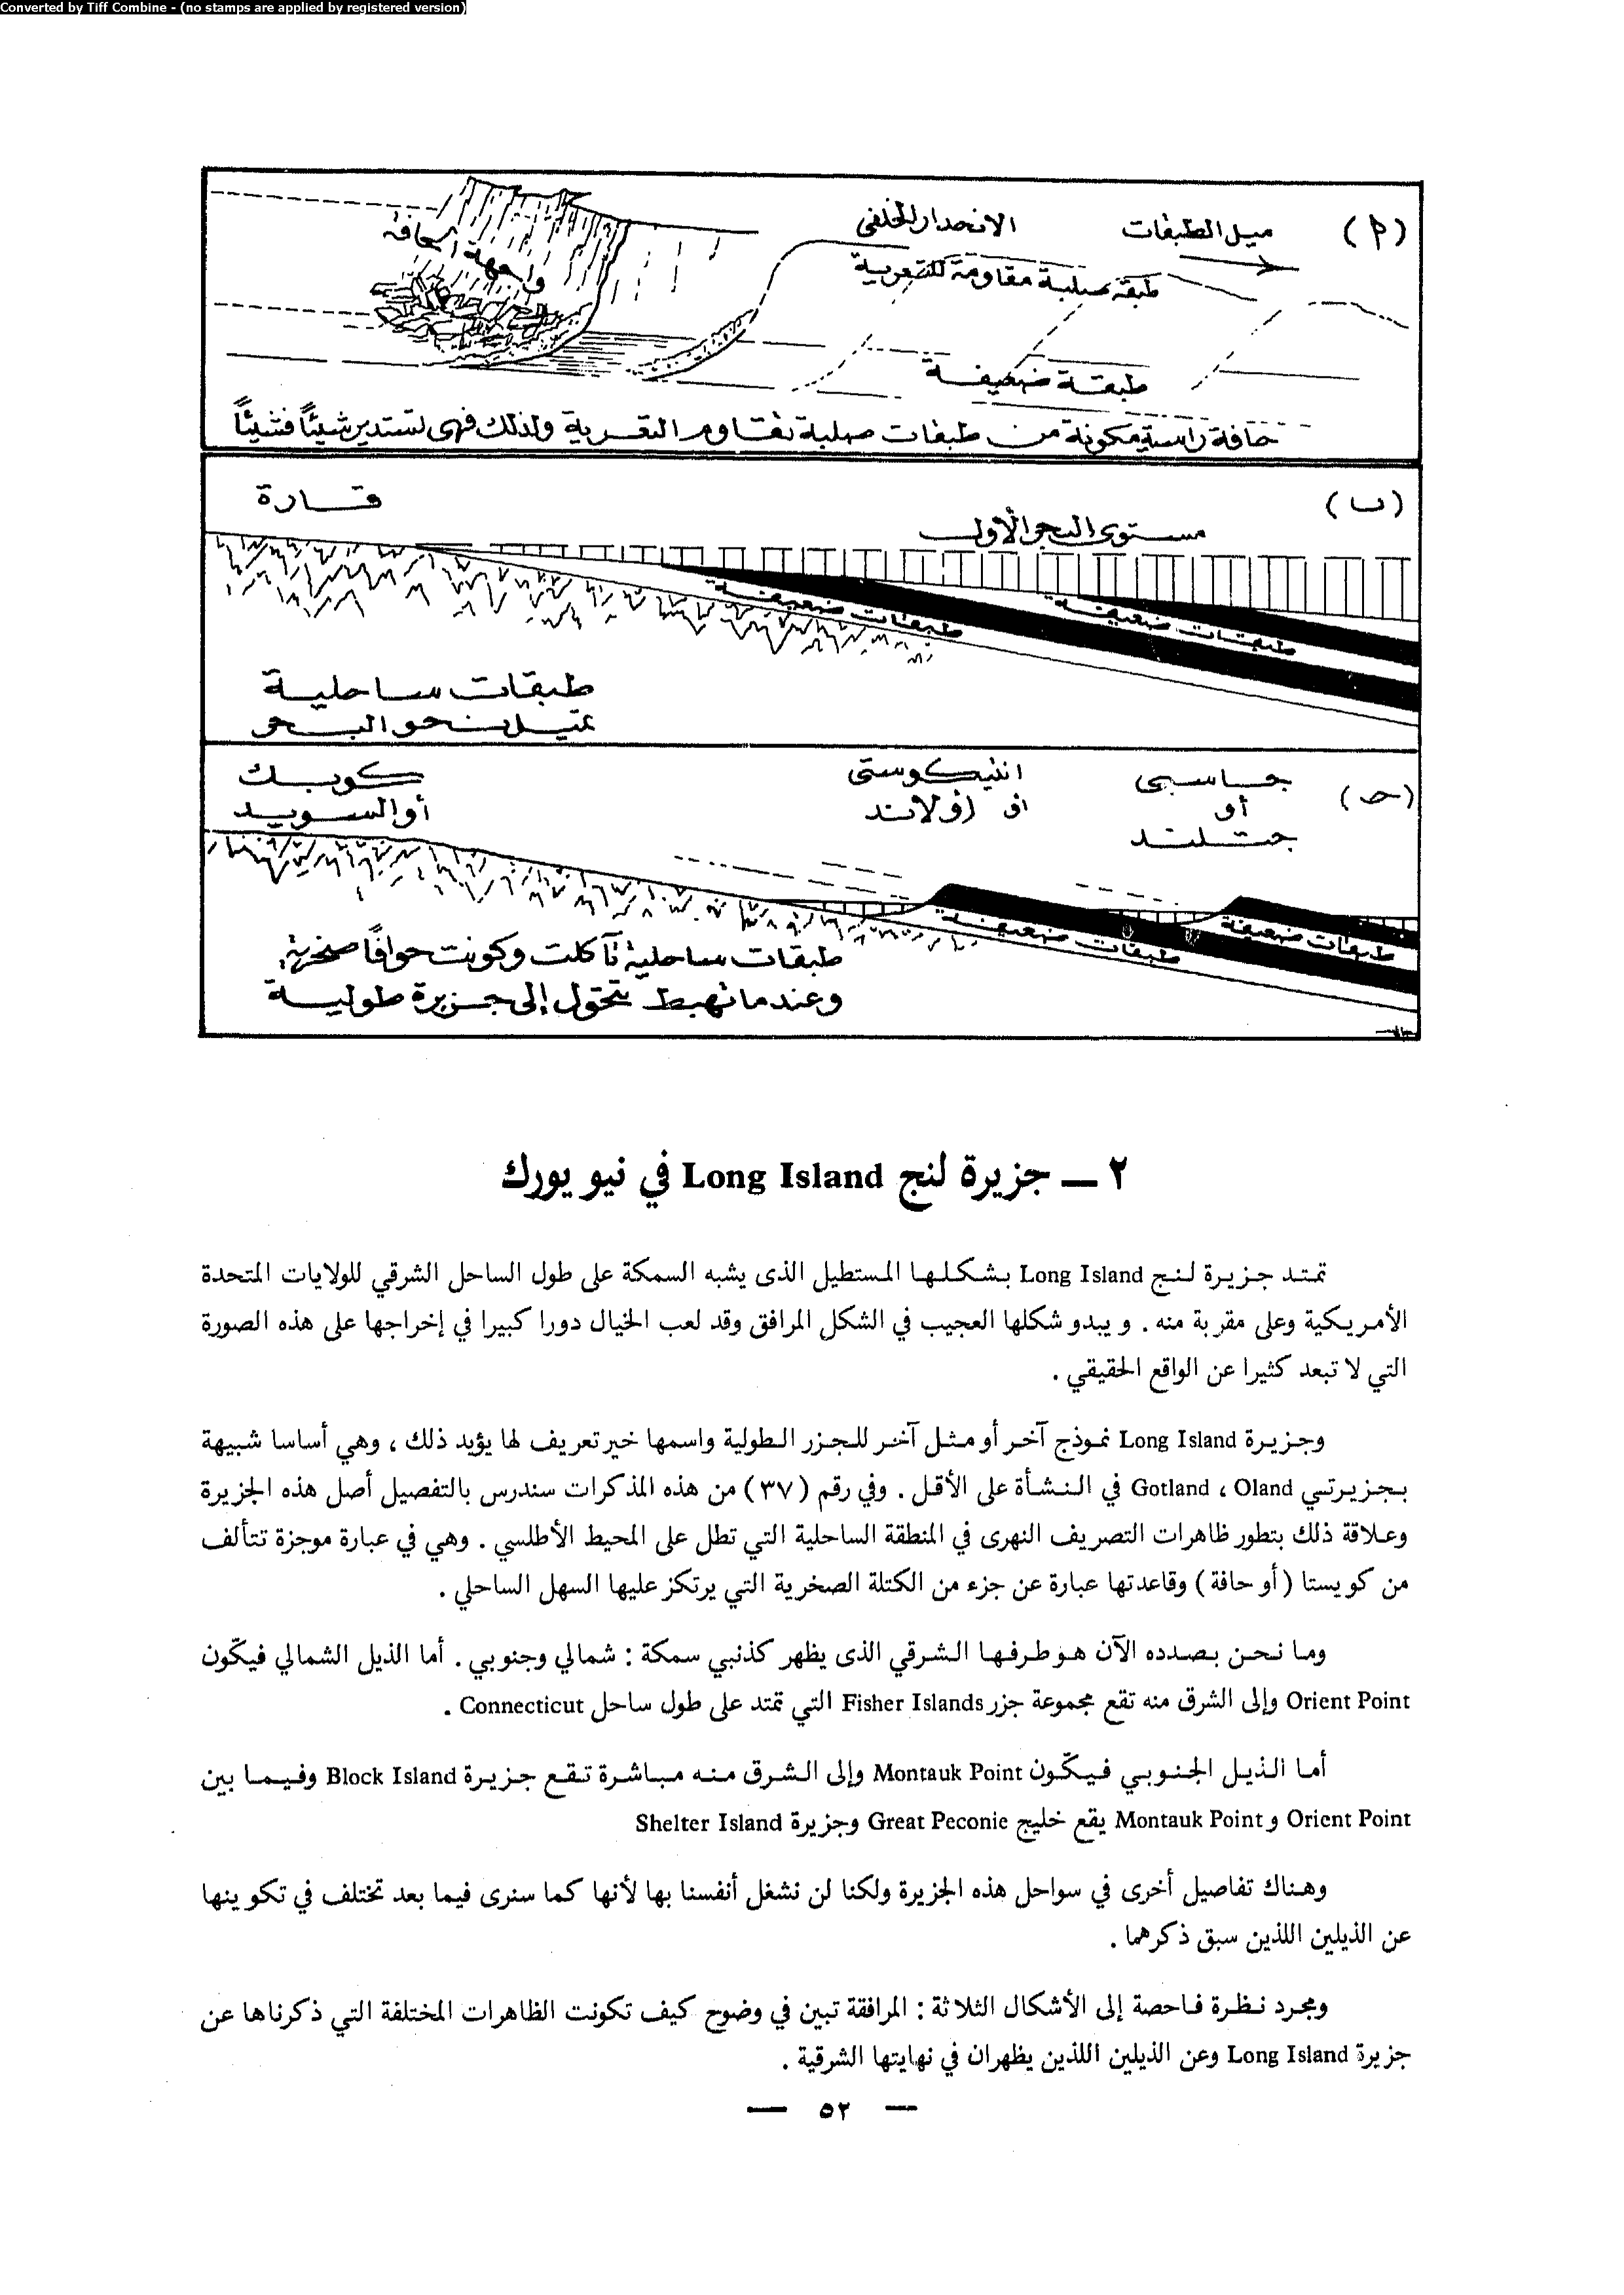 Converted by Tiff Combine - (no stamps are applied by registered version)
(أ)
ميل الطبقات
الانحدار الخلفى
واجهة الحافة
طبقة صلبة مقاومة للتعرية
طبقة ضعيفة
حافة راسية مكونة من طبقات صلبة تقاوم التعرية ولذلك فهى تستدير شيئاً فشيئاً
(ب)
قارة
مستوى البحر الأول
طبقات ضعيفة
طبقات ضعيفة
طبقات ساحلية
تميل نحو البحر
(حـ)
جاسبى
أو
جتلند
انتيكوستى
او اولاند
كوبك
أو السويد
طبقات ضعيفة
طبقات ضعيفة
طبقات ساحلية تآكلت وكونت حوافًا صخرية
وعندما تهبط تتحول إلى جزيرة طولية
٢ — جزيرة لنج Long Island في نيو يورك
تمتد جزيرة لنج Long Island بشكلها المستطيل الذى يشبه السمكة على طول الساحل الشرقي للولايات المتحدة
الأمريكية وعلى مقربة منه . و يبدو شكلها العجيب في الشكل المرافق وقد لعب الخيال دورا كبيرا في إخراجها على هذه الصورة
التي لا تبعد كثيرا عن الواقع الحقيقي .
وجزيرة Long Island نموذج آخر أو مثل آخر للجزر الطولية واسمها خير تعريف لها يؤيد ذلك ، وهي أساسا شبيهة
بجزيرتي Gotland ، Oland في النشأة على الأقل . وفي رقم (٣٧) من هذه المذكرات سندرس بالتفصيل أصل هذه الجزيرة
وعلاقة ذلك بتطور ظاهرات التصريف النهرى في المنطقة الساحلية التي تطل على المحيط الأطلسي . وهي في عبارة موجزة تتألف
من كويستا (أو حافة) وقاعدتها عبارة عن جزء من الكتلة الصخرية التي يرتكز عليها السهل الساحلي .
وما نحن بصدده الآن هو طرفها الشرقي الذى يظهر كذنبي سمكة : شمالي وجنوبي . أما الذيل الشمالي فيكّون
Orient Point وإلى الشرق منه تقع مجموعة جزر Fisher Islands التي تمتد على طول ساحل Connecticut .
أما الذيل الجنوبي فيكّون Montauk Point وإلى الشرق منه مباشرة تقع جزيرة Block Island وفيما بين
Orient Point و Montauk Point يقع خليج Great Peconie وجزيرة Shelter Island
وهناك تفاصيل أخرى في سواحل هذه الجزيرة ولكنا لن نشغل أنفسنا بها لأنها كما سنرى فيما بعد تختلف في تكو ينها
عن الذيلين اللذين سبق ذكرهما .
ومجرد نظرة فاحصة إلى الأشكال الثلاثة : المرافقة تبين في وضوح كيف تكونت الظاهرات المختلفة التي ذكرناها عن
جزيرة Long Island وعن الذيلين اللذين يظهران في نهايتها الشرقية .
— ٥٢ —